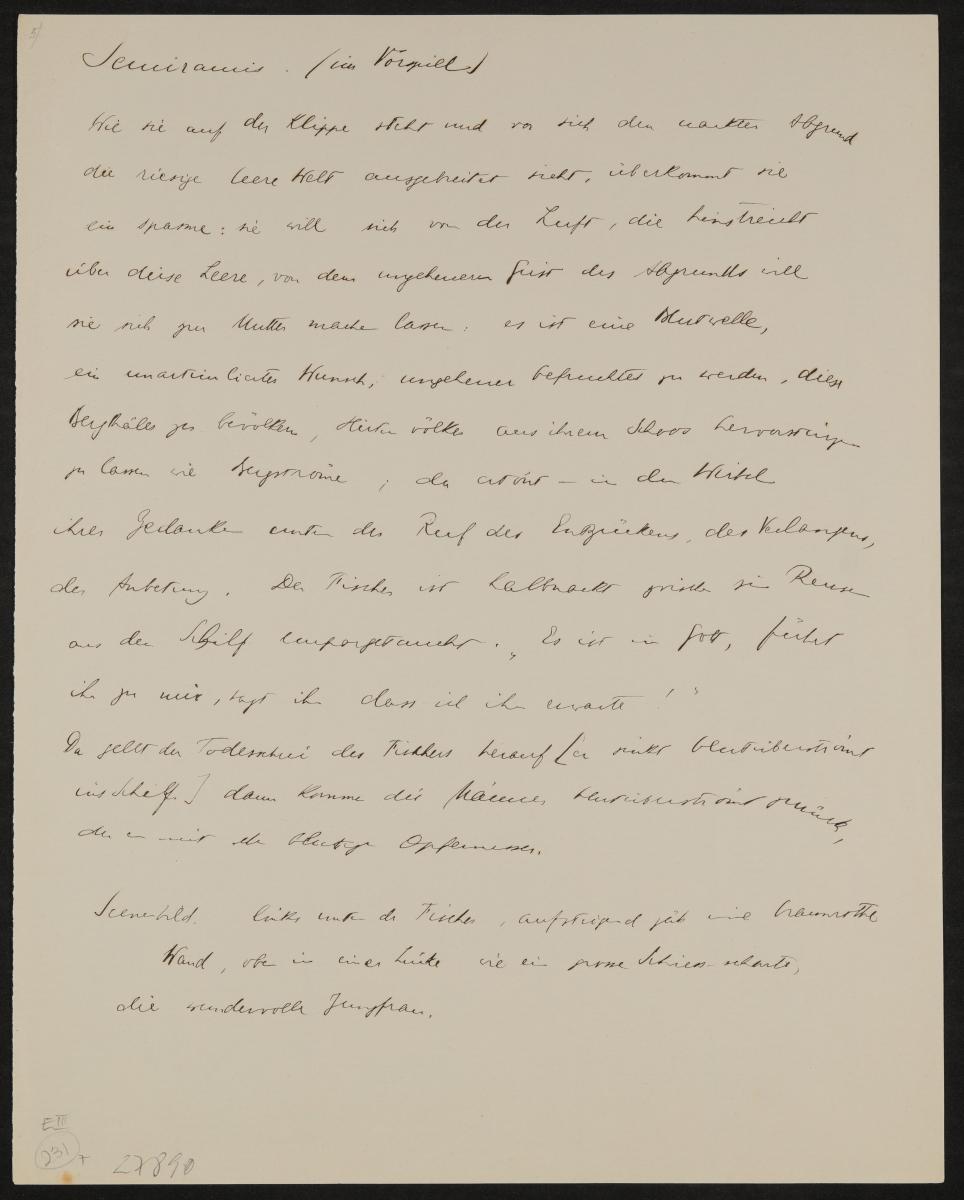 5/
Semiramis. (im Vorspiel)
Wie sie auf der Klippe steht und vor sich den nackten Abgrund
die riesige leere Welt ausgebreitet sieht, überkommt sie
ein spasme: sie will sich von der Luft, die hinstreicht
über diese Leere, von dem ungeheuren Geist des Abgrunds will
sie sich zur Mutter machen lassen: es ist eine Blutwelle,
ein unarticulierter Wunsch, ungeheuer befruchtet zu werden, diese
Bergthäler zu bevölkern, Hirtenvölker aus ihrem Schoos hervorsteigen
zu lassen wie Bergströme; da ertönt – in den Wirbel
ihrer Gedanken unten der Ruf des Entzückens, des Verlangens,
der Anbetung. Der Fischer ist halbnackt zwischen seinen Reusen
aus dem Schilf emporgetaucht. „Es ist ein Gott, führt
ihn zu mir, sagt ihm dass ich ihn erwarte!“
Da gellt der Todesschrei des Fischers herauf [er sinkt blutüberströmt
ins Schilf] dann kommen die Männer blutüberströmt zurück,
der eine mit dem blutigen Opfermesser.
Scenenbild. links unten der Fischer, aufsteigend jäh eine braunrothe
Wand, oben in einer Lücke wie eine grosse Schiess-scharte,
die wundervolle Jungfrau.
E III
231
27890